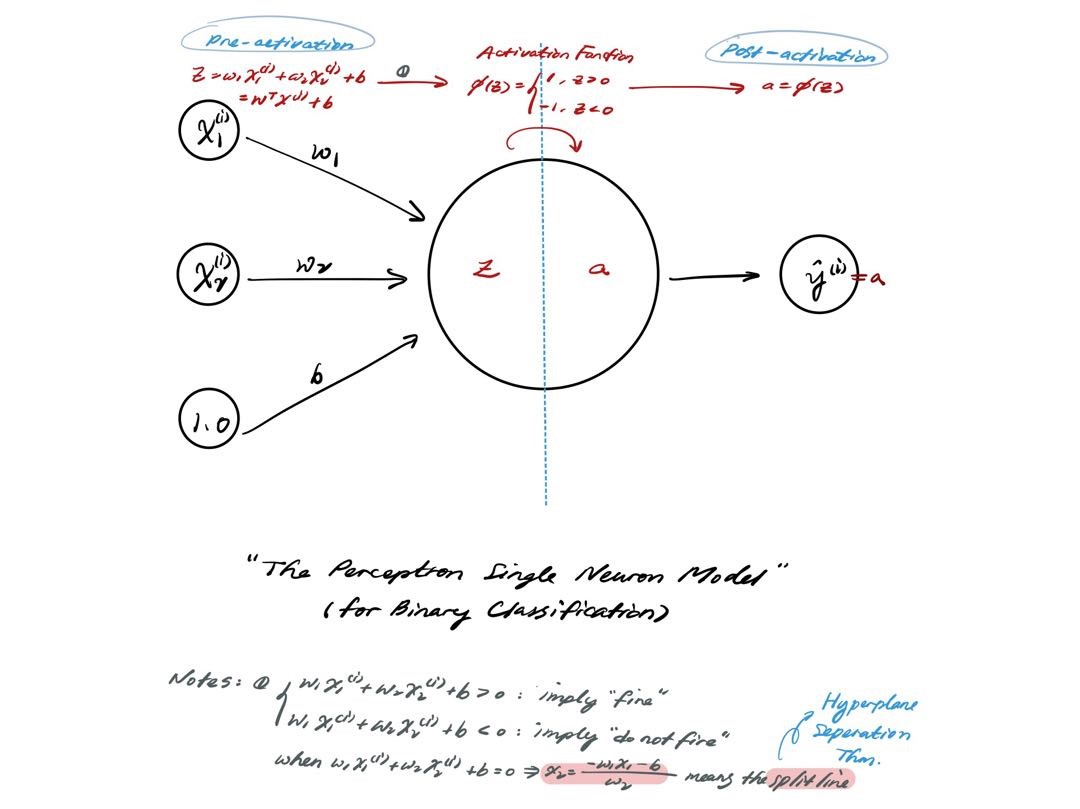 Pre-activation
Z = w₁x₁⁽ⁱ⁾ + w₂x₂⁽ⁱ⁾ + b
= wᵀx⁽ⁱ⁾ + b
①
Activation Function
ϕ(z) = { 1, z>0
-1, z<0
Post-activation
a = ϕ(z)
x₁⁽ⁱ⁾
w₁
x₂⁽ⁱ⁾
w₂
1.0
b
z
a
ŷ⁽ⁱ⁾ = a
"The Perceptron Single Neuron Model"
(for Binary Classification)
Notes: ① { w₁x₁⁽ⁱ⁾ + w₂x₂⁽ⁱ⁾ + b > 0 : imply "fire"
w₁x₁⁽ⁱ⁾ + w₂x₂⁽ⁱ⁾ + b < 0 : imply "do not fire"
when w₁x₁⁽ⁱ⁾ + w₂x₂⁽ⁱ⁾ + b = 0 ⇒ x₂ = (-w₁x₁ - b)/w₂ means the split line
Hyperplane
Seperation
Thm.